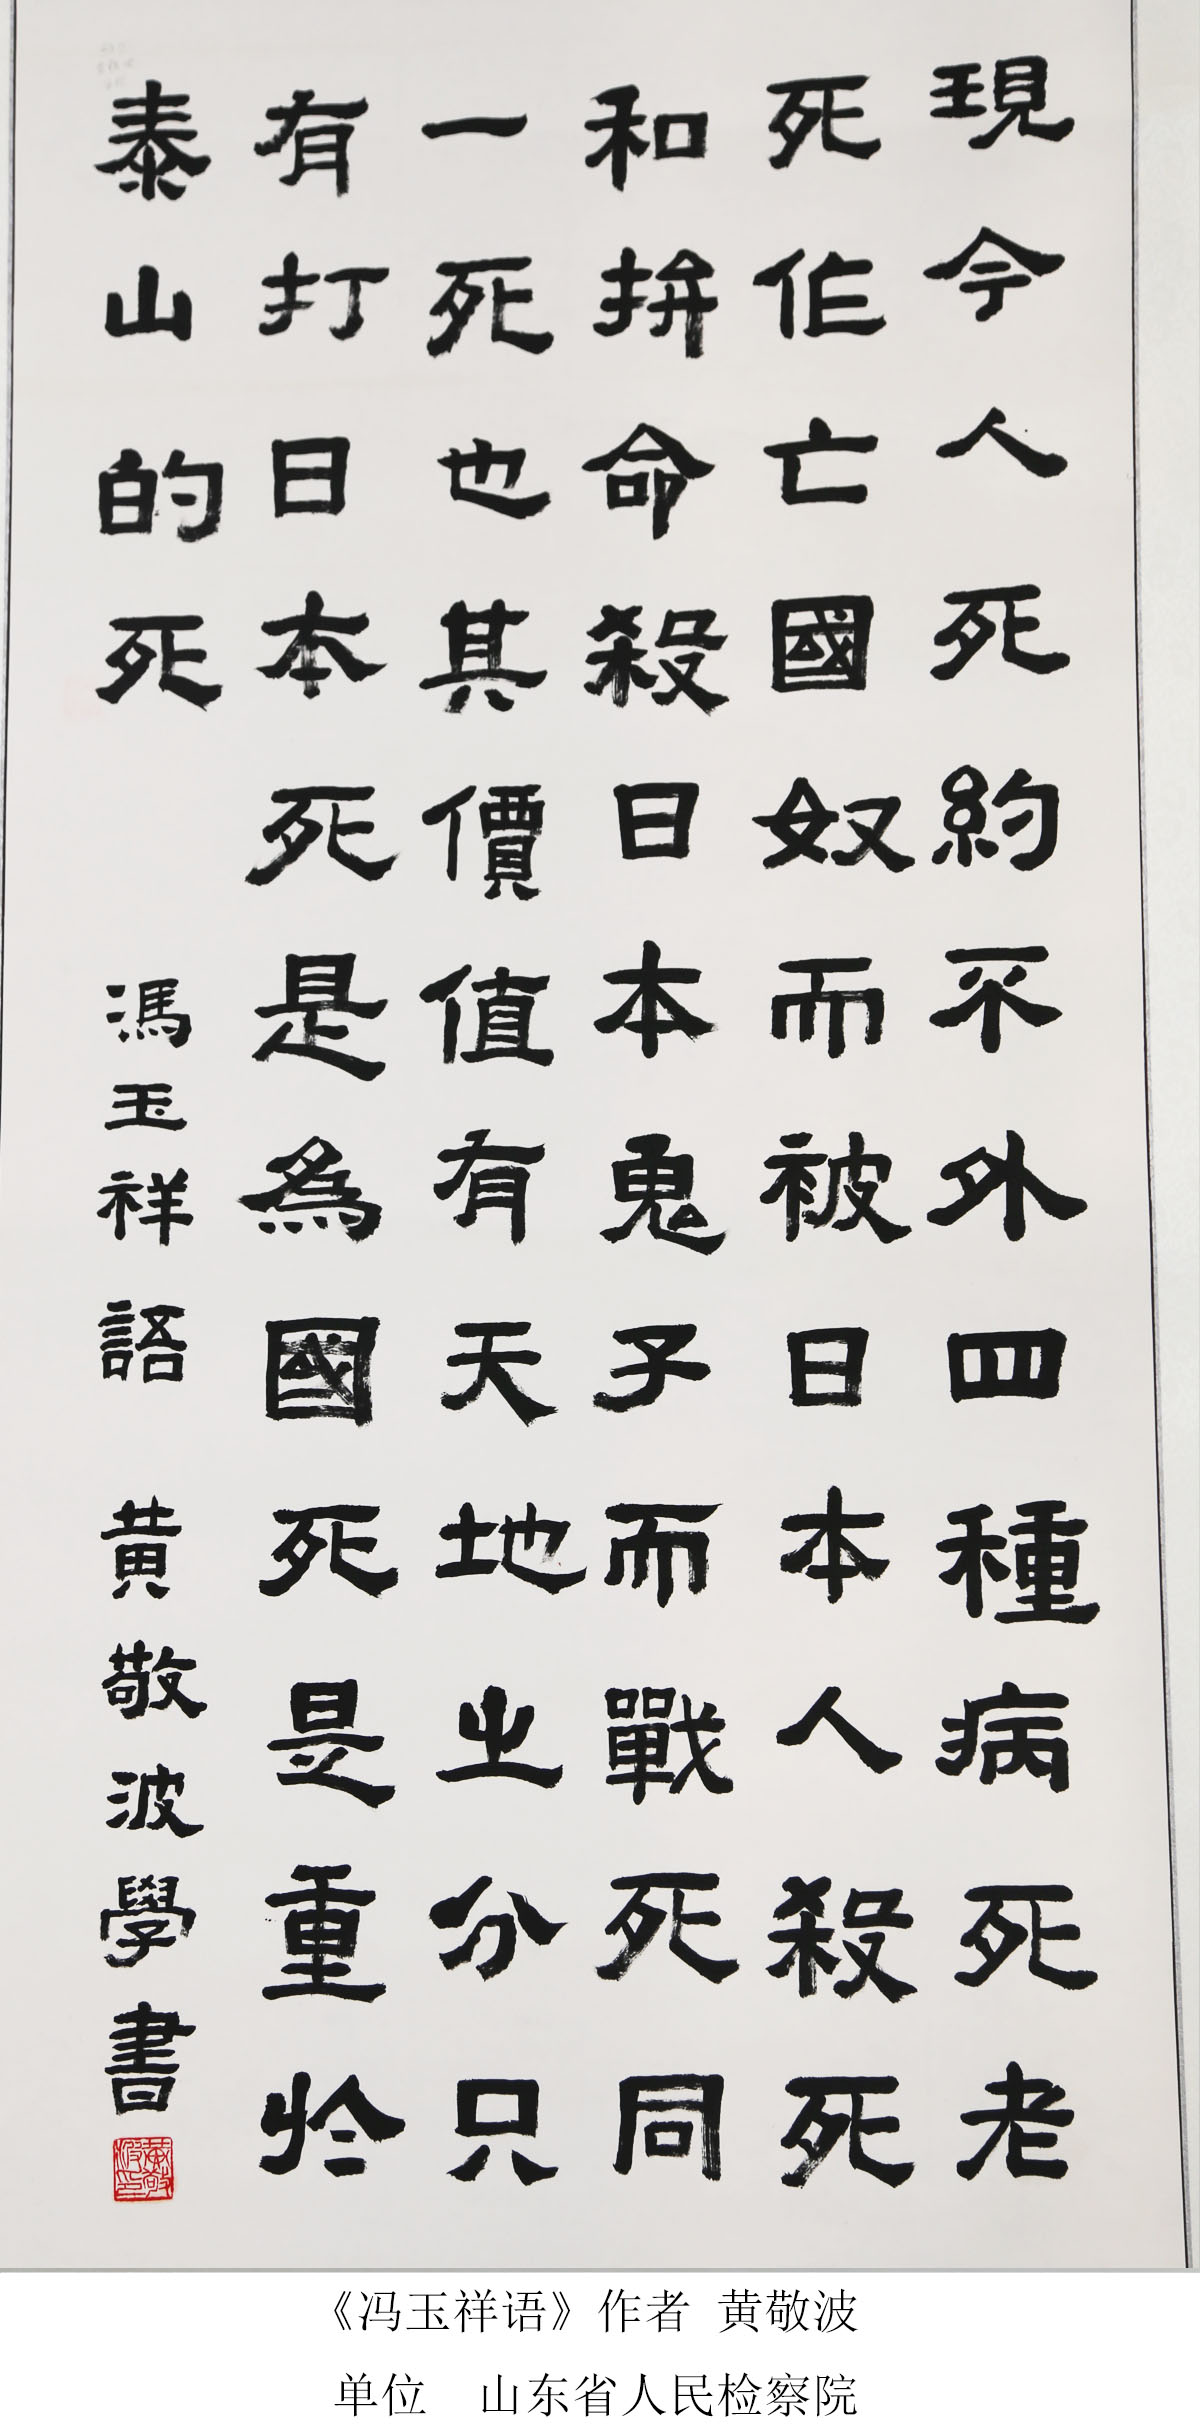 現今人死約不外四種病死老
死作亡國奴而被日本人殺死
和拚命殺日本鬼子而戰死同
一死也其價值有天地之分只
有打日本死是為國死是重於
泰山的死
馮玉祥語 黄敬波學書
黄敬波印
《冯玉祥语》作者 黄敬波
单位 山东省人民检察院